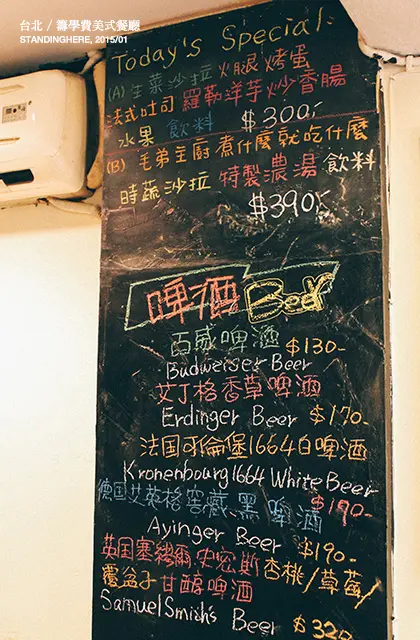 台北 / 籌學費美式餐廳
STANDINGHERE, 2015/01
Today's Special:
(A) 生菜沙拉 火腿 烤蛋
法式吐司 羅勒洋芋炒香腸
水果 飲料 $300.-
(B) 毛弟主廚煮什麼就吃什麼
時蔬沙拉 特製濃湯 飲料
$390.-
啤酒 Beer
百威啤酒 $130-
Budweiser Beer
艾丁格香草啤酒
Erdinger Beer $170-
法国可倫堡1664白啤酒
Kronenbourg1664 White Beer
$190-
德国艾英格窖藏.黑 啤酒
Ayinger Beer $190-
英国塞繆爾.史密斯杏桃/草莓/
覆盆子甘醇啤酒
Samuel Smith's Beer